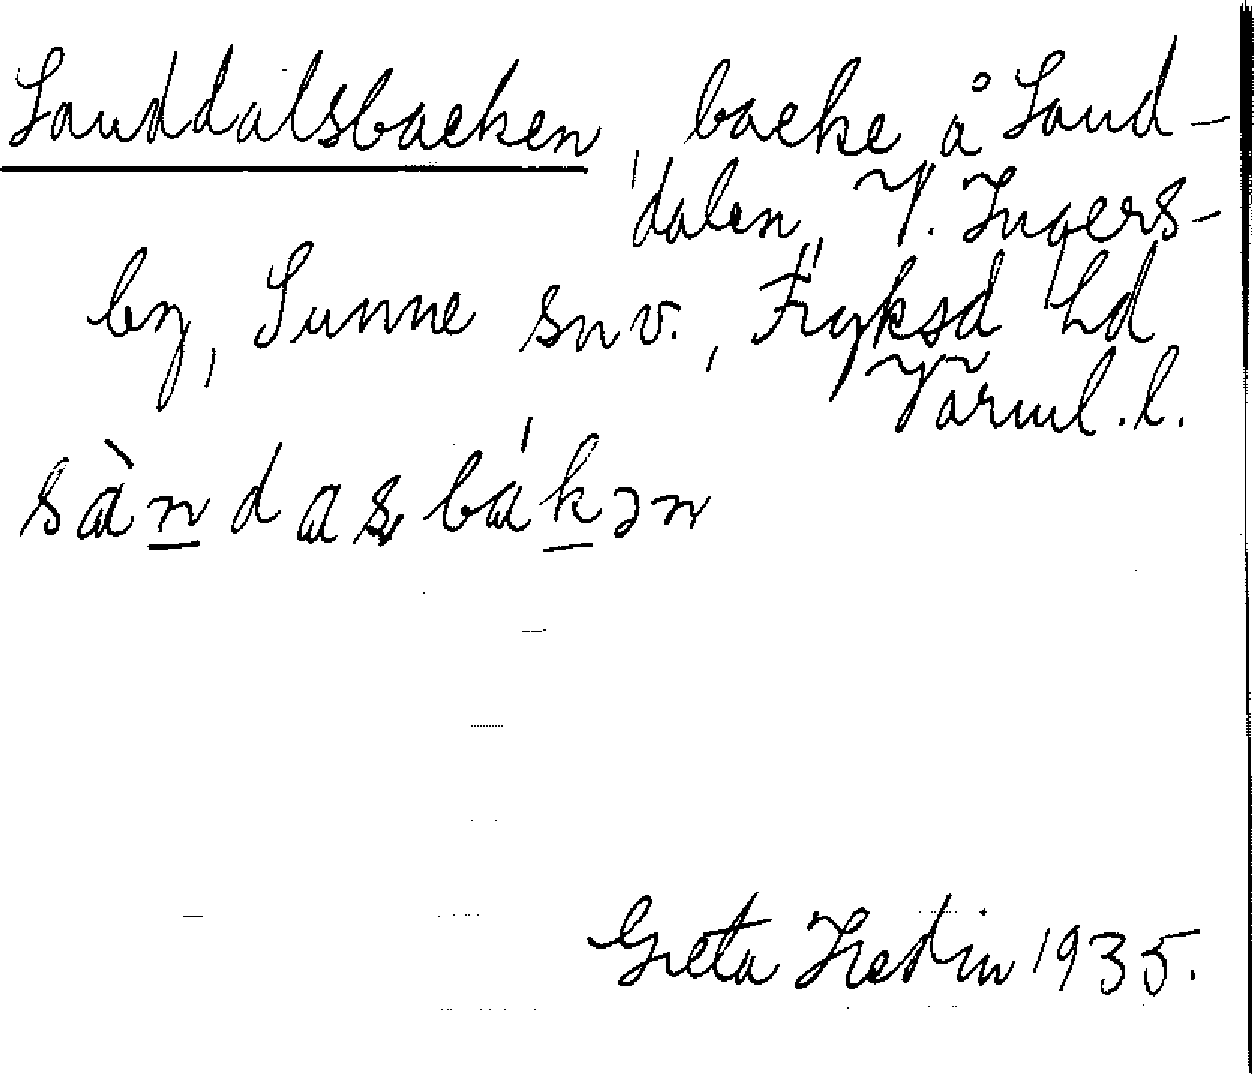 Sanddalsbacken, backe å Sand-
dalen, V. Ingers-
by, Sunne snv., Fryksd hd
Värml. l.
sàndasbákən
Greta Hedin 1935.